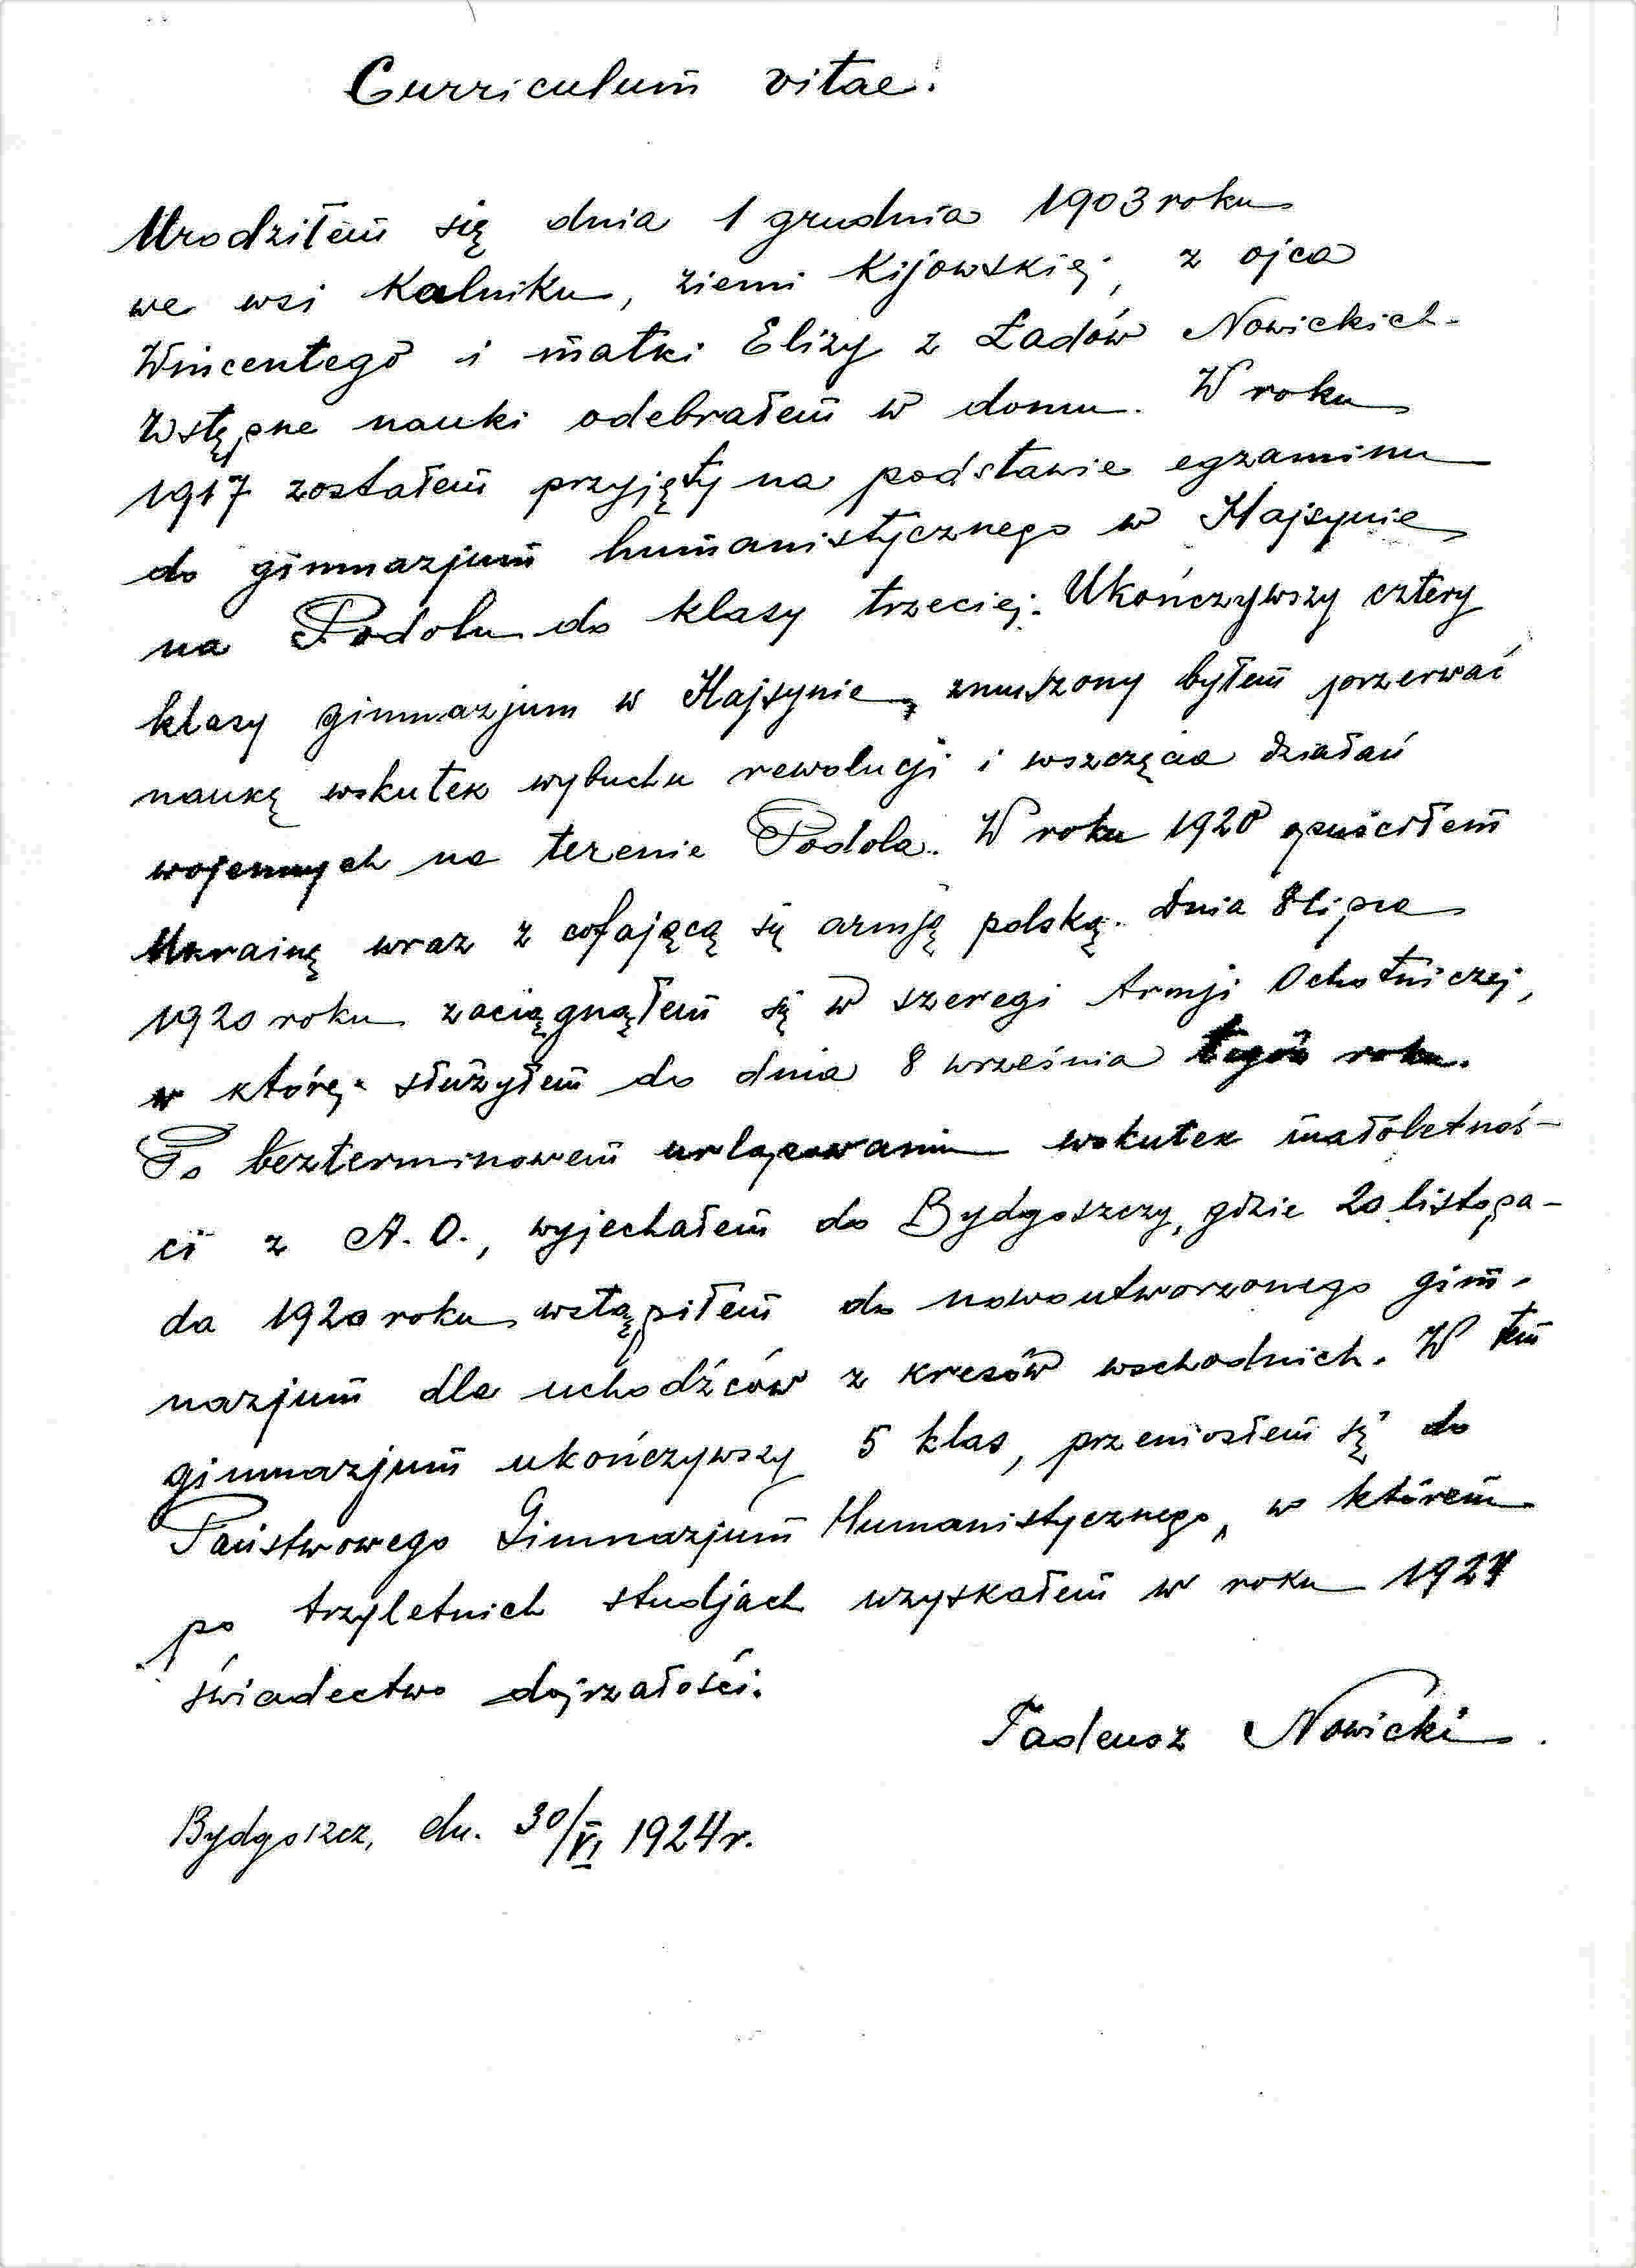 Curriculum vitae.
Urodziłem się dnia 1 grudnia 1903 roku
we wsi Kalniku, ziemi Kijowskiej, z ojca
Wincentego i matki Elizy z Ładów Nowickich.
Wstępne nauki odebrałem w domu. W roku
1917 zostałem przyjęty na podstawie egzaminu
do gimnazjum humanistycznego w Hajsynie
na Podolu do klasy trzeciej. Ukończywszy cztery
klasy gimnazjum w Hajsynie, zmuszony byłem przerwać
naukę wskutek wybuchu rewolucji i wszczęcia działań
wojennych na terenie Podola. W roku 1920 opuściłem
Ukrainę wraz z cofającą się armją polską. Dnia 8 lipca
1920 roku zaciągnąłem się w szeregi Armji Ochotniczej,
w której służyłem do dnia 8 września tegoż roku.
Po bezterminowem urlopowaniu wskutek małoletnoś-
ci z A. O., wyjechałem do Bydgoszczy, gdzie 20 listopa-
da 1920 roku wstąpiłem do nowoutworzonego gim-
nazjum dla uchodźców z kresów wschodnich. W tem
gimnazjum ukończywszy 5 klas, przeniosłem się do
Państwowego Gimnazjum Humanistycznego, w którem
po trzyletnich studjach uzyskałem w roku 1924
świadectwo dojrzałości.
Tadeusz Nowicki.
Bydgoszcz, dn. 30/VI 1924 r.